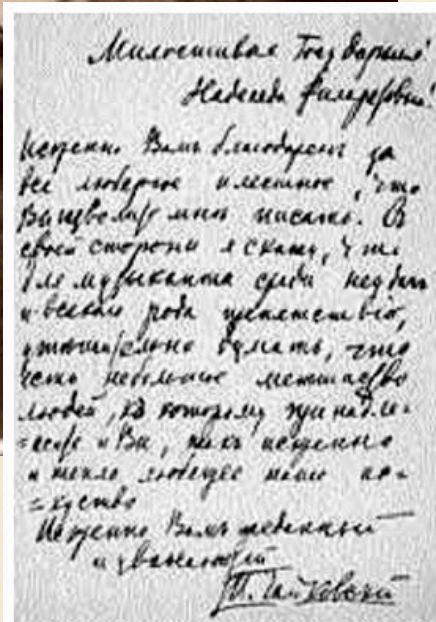 Милостивая Государыня!
Надежда Филаретовна!
Искренно Вамъ благодаренъ за
все любезное и лестное, что
Вы изволите мнѣ писать. Съ
своей стороны я скажу, что
для музыканта среди неудачъ
и всякаго рода препятствій,
утѣшительно думать, что
есть небольшое меньшинство
людей, къ которому принадле-
=жите и Вы, такъ искренно
и тепло любящее наше ис-
=куство
Искренно Вамъ преданный
и уважающій
П. Чайковскій